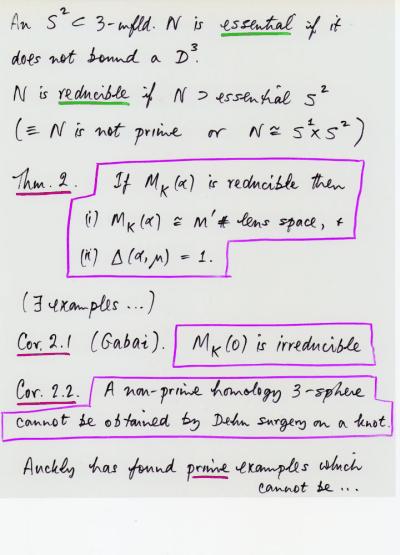 An S² ⊂ 3-mfld. N is essential if it
does not bound a D³.
N is reducible if N ⊃ essential S²
(≡ N is not prime or N ≅ S¹×S²)
Thm. 2. If M_K(α) is reducible then
(i) M_K(α) ≅ M' # lens space, &
(ii) Δ(α,μ) = 1.
(∃ examples ...)
Cor. 2.1 (Gabai). M_K(0) is irreducible
Cor. 2.2. A non-prime homology 3-sphere
cannot be obtained by Dehn surgery on a knot.
Auckly has found prime examples which
cannot be ...